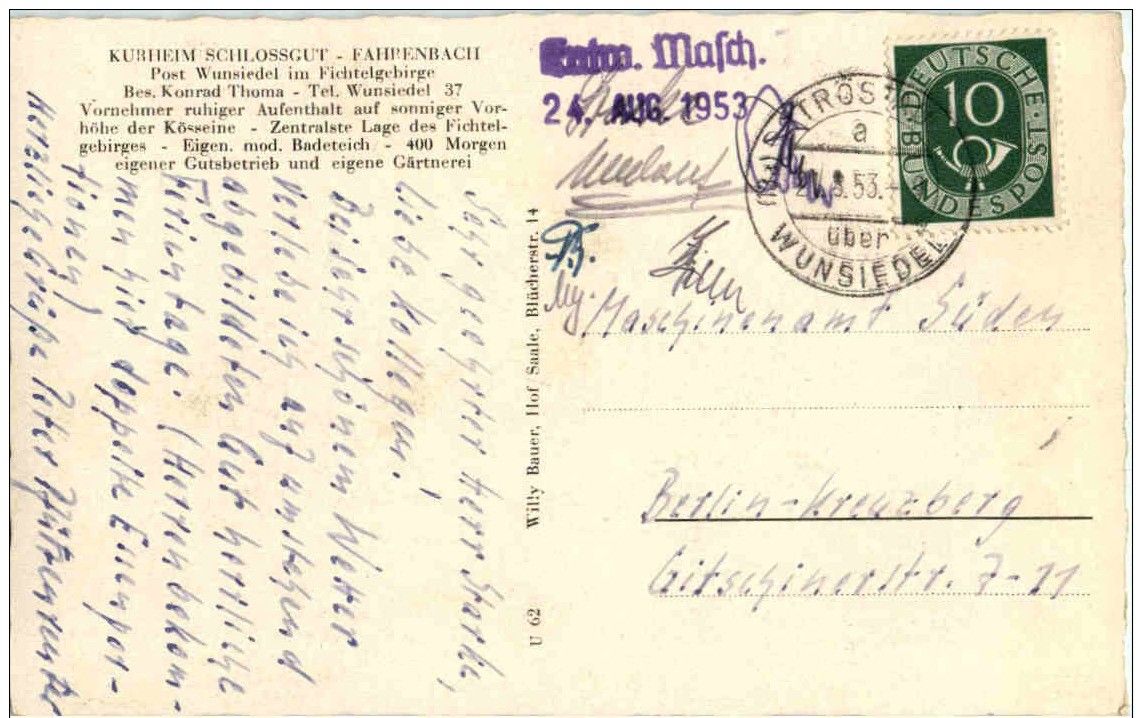 KURHEIM SCHLOSSGUT - FAHRENBACH
Post Wunsiedel im Fichtelgebirge
Bes. Konrad Thoma - Tel. Wunsiedel 37
Vornehmer ruhiger Aufenthalt auf sonniger Vor-
höhe der Kösseine - Zentralste Lage des Fichtel-
gebirges - Eigen. mod. Badeteich - 400 Morgen
eigener Gutsbetrieb und eigene Gärtnerei
Sehr geehrter Herr Starke,
liebe Kollegen!
Bei sehr schönem Wetter
verlebe ich auf umstehend
abgebildeten Gut herrliche
Ferientage. (Herren bekom-
men hier doppelte Essenpor-
tionen)
Herzliche Grüße Ihr
Willy Bauer, Hof Saale, Blücherstr. 14
U 62
Masch.
24. AUG. 1953
TRÖST
a
8.53.
über
WUNSIEDEL
DEUTSCHE BUNDESPOST
10
Maschinenamt Süden
Berlin-Kreuzberg
Gitschinerstr. 7-11